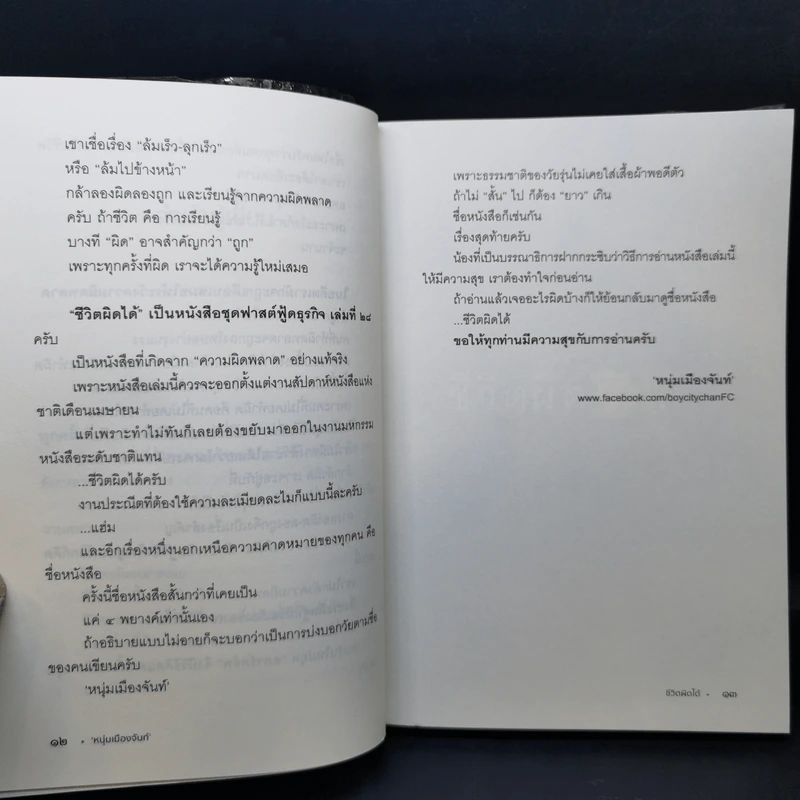 เขาเชื่อเรื่อง “ล้มเร็ว-ลุกเร็ว”
หรือ “ล้มไปข้างหน้า”
กล้าลองผิดลองถูก และเรียนรู้จากความผิดพลาด
ครับ ถ้าชีวิต คือ การเรียนรู้
บางที “ผิด” อาจสำคัญกว่า “ถูก”
เพราะทุกครั้งที่ผิด เราจะได้ความรู้ใหม่เสมอ
“ชีวิตผิดได้” เป็นหนังสือชุดฟาสต์ฟู้ดธุรกิจ เล่มที่ ๒๘
ครับ
เป็นหนังสือที่เกิดจาก “ความผิดพลาด” อย่างแท้จริง
เพราะหนังสือเล่มนี้ควรจะออกตั้งแต่งานสัปดาห์หนังสือแห่ง
ชาติเดือนเมษายน
แต่เพราะทำไม่ทันก็เลยต้องขยับมาออกในงานมหกรรม
หนังสือระดับชาติแทน
...ชีวิตผิดได้ครับ
งานประณีตที่ต้องใช้ความละเมียดละไมก็แบบนี้ละครับ
...แฮ่ม
และอีกเรื่องหนึ่งนอกเหนือความคาดหมายของทุกคน คือ
ชื่อหนังสือ
ครั้งนี้ชื่อหนังสือสั้นกว่าที่เคยเป็น
แค่ ๔ พยางค์เท่านั้นเอง
ถ้าอธิบายแบบไม่อายก็จะบอกว่าเป็นการบ่งบอกวัยตามชื่อ
ของคนเขียนครับ
‘หนุ่มเมืองจันท์’
๑๒ • ‘หนุ่มเมืองจันท์’
เพราะธรรมชาติของวัยรุ่นไม่เคยใส่เสื้อผ้าพอดีตัว
ถ้าไม่ “สั้น” ไป ก็ต้อง “ยาว” เกิน
ชื่อหนังสือก็เช่นกัน
เรื่องสุดท้ายครับ
น้องที่เป็นบรรณาธิการฝากกระซิบว่าวิธีการอ่านหนังสือเล่มนี้
ให้มีความสุข เราต้องทำใจก่อนอ่าน
ถ้าอ่านแล้วเจออะไรผิดบ้างก็ให้ย้อนกลับมาดูชื่อหนังสือ
...ชีวิตผิดได้
ขอให้ทุกท่านมีความสุขกับการอ่านครับ
‘หนุ่มเมืองจันท์’
www.facebook.com/boycitychanFC
ชีวิตผิดได้ • ๑๓